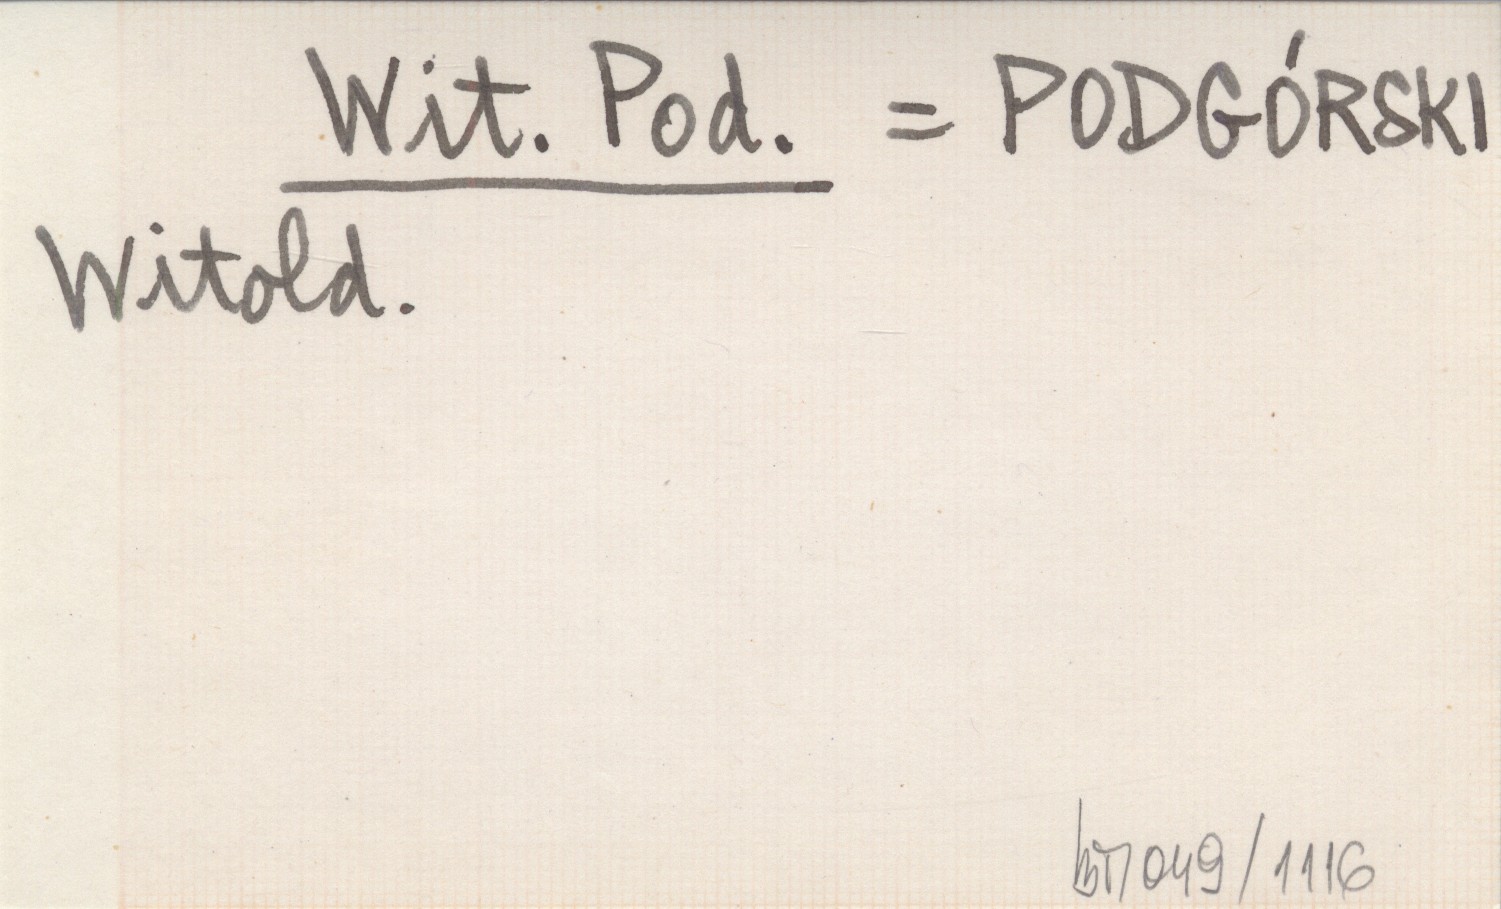 Wit. Pod. = PODGÓRSKI
Witold.
049/1116